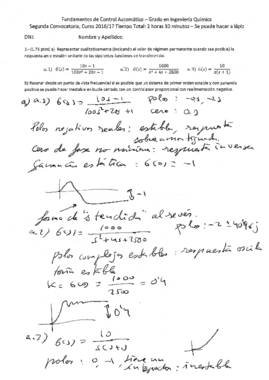 Fundamentos de Control Automático – Grado en Ingeniería Química
Segunda Convocatoria, Curso 2016/17 Tiempo Total: 2 horas 30 minutos – Se puede hacer a lápiz
DNI: Nombre y Apellidos:
1.- (1.75 ptos) a) Representar cualitativamente (indicando el valor de régimen permanente cuando sea posible) la
respuesta a escalón unitario de las siguientes funciones de transferencia:
a.2) G(s) = a.3) G(s) =
b) Razonar desde un punto de vista frecuencial si es posible que un sistema de primer orden estable y con ganancia
positiva se puede hacer inestable en bucle cerrado con un controlador proporcional con realimentación negativa.
polos:
cero:
Polos negativos reales: estable, respuesta
sobreamortiguada
Cero de fase no mínima: respuesta inversa
Ganancia estática: G(0) = -1
-1
forma de "s tendida" al revés.
a.2) G(s) = 1000
polos:
polos complejos estables: respuesta oscila
toria estable
K = G(0) = 1000 / 2500 = 0'4
0'4
a.3) G(s) = 10 / s(s+1)
polos: 0, -1 tiene un
integrador: inestable